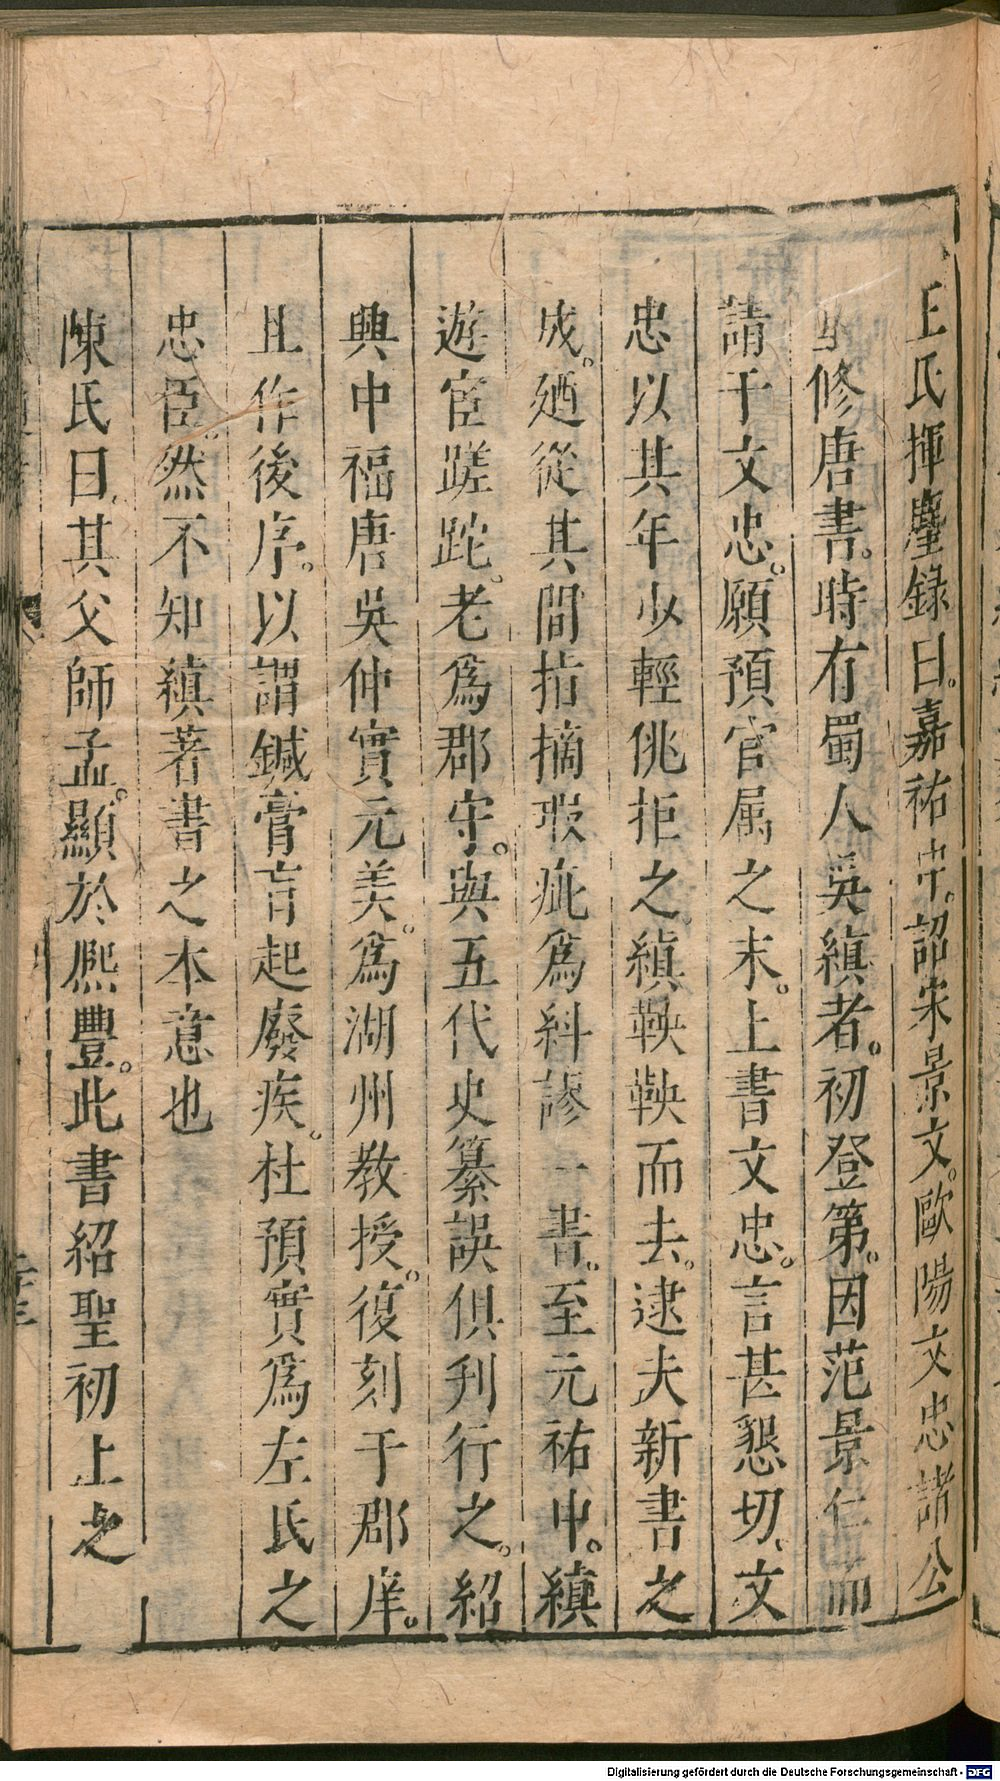 王氏揮麈錄曰。嘉祐中。詔宋景文。歐陽文忠諸公
重修唐書。時有蜀人吳縝者。初登第。因范景仁而
請于文忠。願預官属之末。上書文忠。言甚懇切、文
忠以其年少輕佻拒之、縝鞅鞅而去。逮夫新書之
成。廼從其間指摘瑕疵爲糾謬一書。至元祐中。縝
遊宦蹉跎。老爲郡守。與五代史纂誤俱刋行之。紹
興中福唐吳仲實元美。爲湖州教授。復刻于郡庠。
且作後序。以謂鍼膏肓起廢疾。杜預實爲左氏之
忠臣。然不知縝著書之本意也
陳氏曰、其父師孟。顯於熈豐。此書紹聖初上之
Digitalisierung gefördert durch die Deutsche Forschungsgemeinschaft - DFG